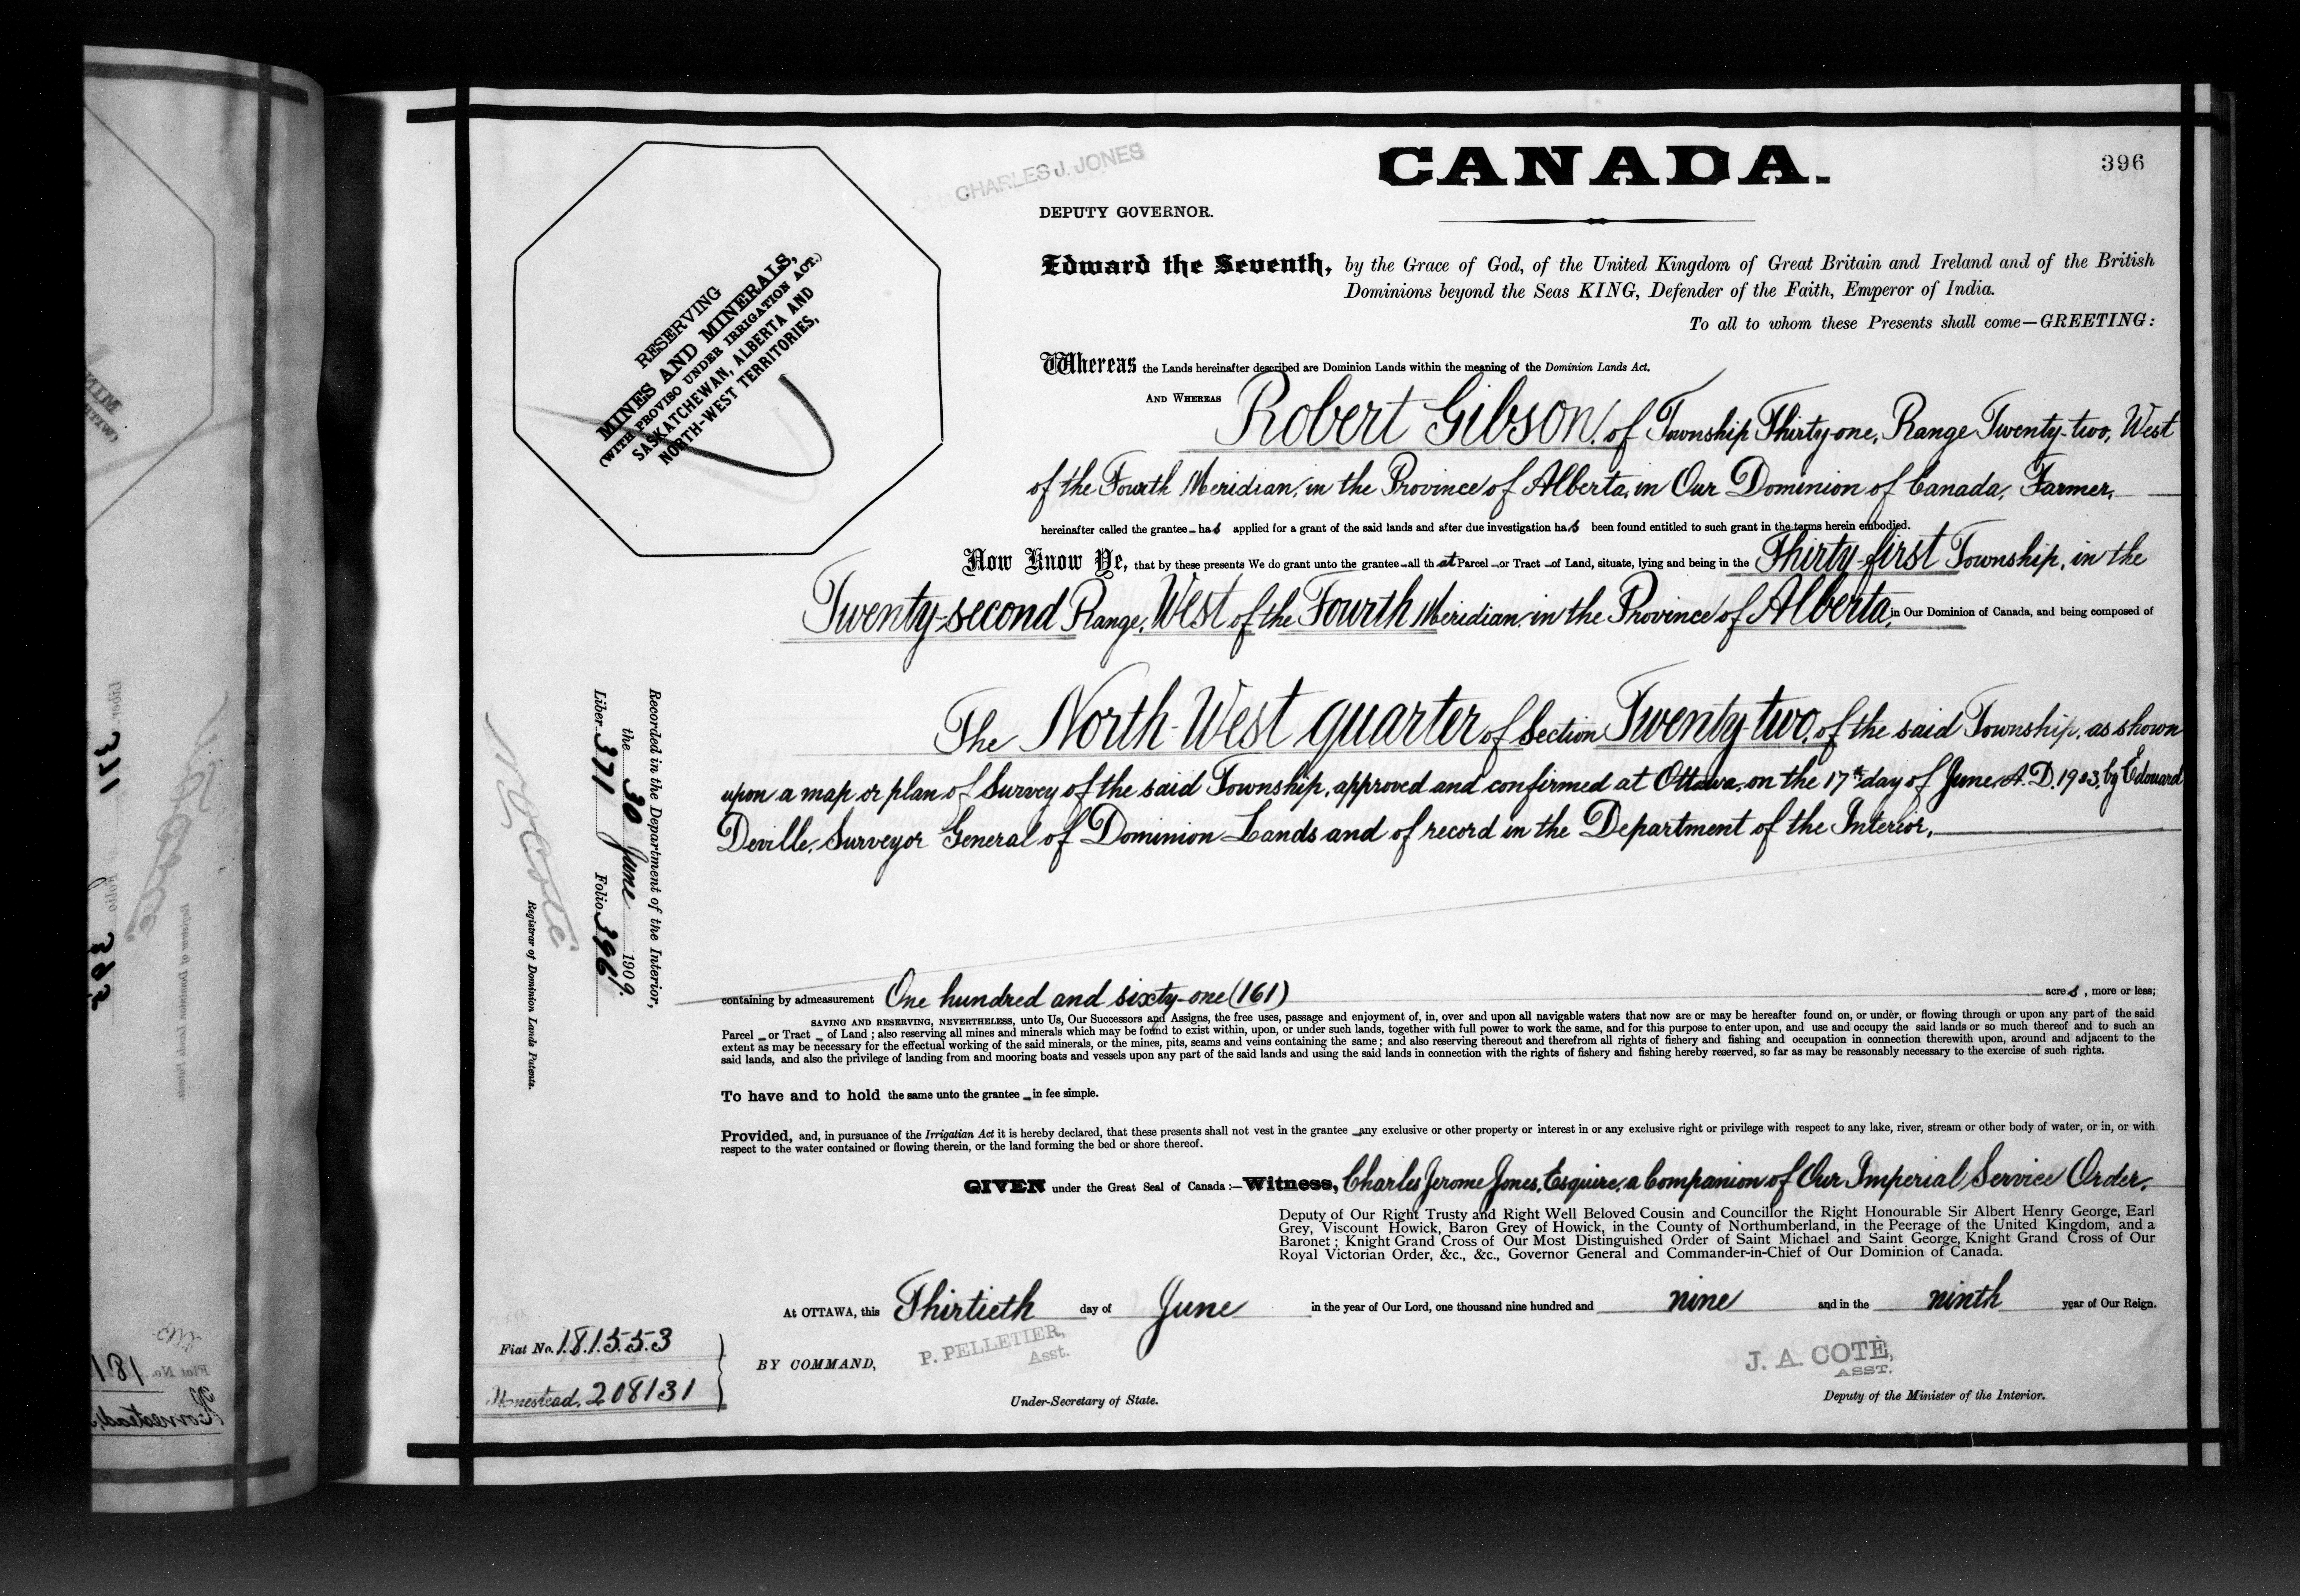 CANADA.
396
CHARLES J. JONES
DEPUTY GOVERNOR.
RESERVING
MINES AND MINERALS,
(WITH PROVISO UNDER IRRIGATION ACT.)
SASKATCHEWAN, ALBERTA AND
NORTH-WEST TERRITORIES,
Edward the Seventh, by the Grace of God, of the United Kingdom of Great Britain and Ireland and of the British
Dominions beyond the Seas KING, Defender of the Faith, Emperor of India.
To all to whom these Presents shall come—GREETING:
Whereas the Lands hereinafter described are Dominion Lands within the meaning of the Dominion Lands Act.
AND WHEREAS Robert Gibson, of Township Thirty-one, Range Twenty-two, West
of the Fourth Meridian, in the Province of Alberta, in Our Dominion of Canada, Farmer,
hereinafter called the grantee has applied for a grant of the said lands and after due investigation has been found entitled to such grant in the terms herein embodied.
Now Know Ye, that by these presents We do grant unto the grantee all that Parcel or Tract of Land, situate, lying and being in the Thirty-first Township, in the
Twenty-second Range, West of the Fourth Meridian in the Province of Alberta, in Our Dominion of Canada, and being composed of
The North-West quarter of Section Twenty-two, of the said Township, as shown
upon a map or plan of Survey of the said Township, approved and confirmed at Ottawa, on the 17th day of June, A.D. 1903, by Edouard
Deville, Surveyor General of Dominion Lands and of record in the Department of the Interior,
Recorded in the Department of the Interior,
the 30 June 1909.
Liber 371 Folio 396
N O Coté
Registrar of Dominion Lands Patents.
containing by admeasurement One hundred and sixty-one (161) acres, more or less;
SAVING AND RESERVING, NEVERTHELESS, unto Us, Our Successors and Assigns, the free uses, passage and enjoyment of, in, over and upon all navigable waters that now are or may be hereafter found on, or under, or flowing through or upon any part of the said
Parcel or Tract of Land; also reserving all mines and minerals which may be found to exist within, upon, or under such lands, together with full power to work the same, and for this purpose to enter upon, and use and occupy the said lands or so much thereof and to such an
extent as may be necessary for the effectual working of the said minerals, or the mines, pits, seams and veins containing the same; and also reserving thereout and therefrom all rights of fishery and fishing and occupation in connection therewith upon, around and adjacent to the
said lands, and also the privilege of landing from and mooring boats and vessels upon any part of the said lands and using the said lands in connection with the rights of fishery and fishing hereby reserved, so far as may be reasonably necessary to the exercise of such rights.
To have and to hold the same unto the grantee in fee simple.
Provided, and, in pursuance of the Irrigation Act it is hereby declared, that these presents shall not vest in the grantee any exclusive or other property or interest in or any exclusive right or privilege with respect to any lake, river, stream or other body of water, or in, or with
respect to the water contained or flowing therein, or the land forming the bed or shore thereof.
GIVEN under the Great Seal of Canada:—Witness, Charles Jerome Jones, Esquire, a Companion of Our Imperial Service Order,
Deputy of Our Right Trusty and Right Well Beloved Cousin and Councillor the Right Honourable Sir Albert Henry George, Earl
Grey, Viscount Howick, Baron Grey of Howick, in the County of Northumberland, in the Peerage of the United Kingdom, and a
Baronet; Knight Grand Cross of Our Most Distinguished Order of Saint Michael and Saint George, Knight Grand Cross of Our
Royal Victorian Order, &c., &c., Governor General and Commander-in-Chief of Our Dominion of Canada.
At OTTAWA, this Thirtieth day of June in the year of Our Lord, one thousand nine hundred and nine and in the ninth year of Our Reign.
Fiat No. 181553
Homestead, 208131
BY COMMAND,
P. PELLETIER,
Asst.
Under-Secretary of State.
J. A. COTÉ,
ASST.
Deputy of the Minister of the Interior.